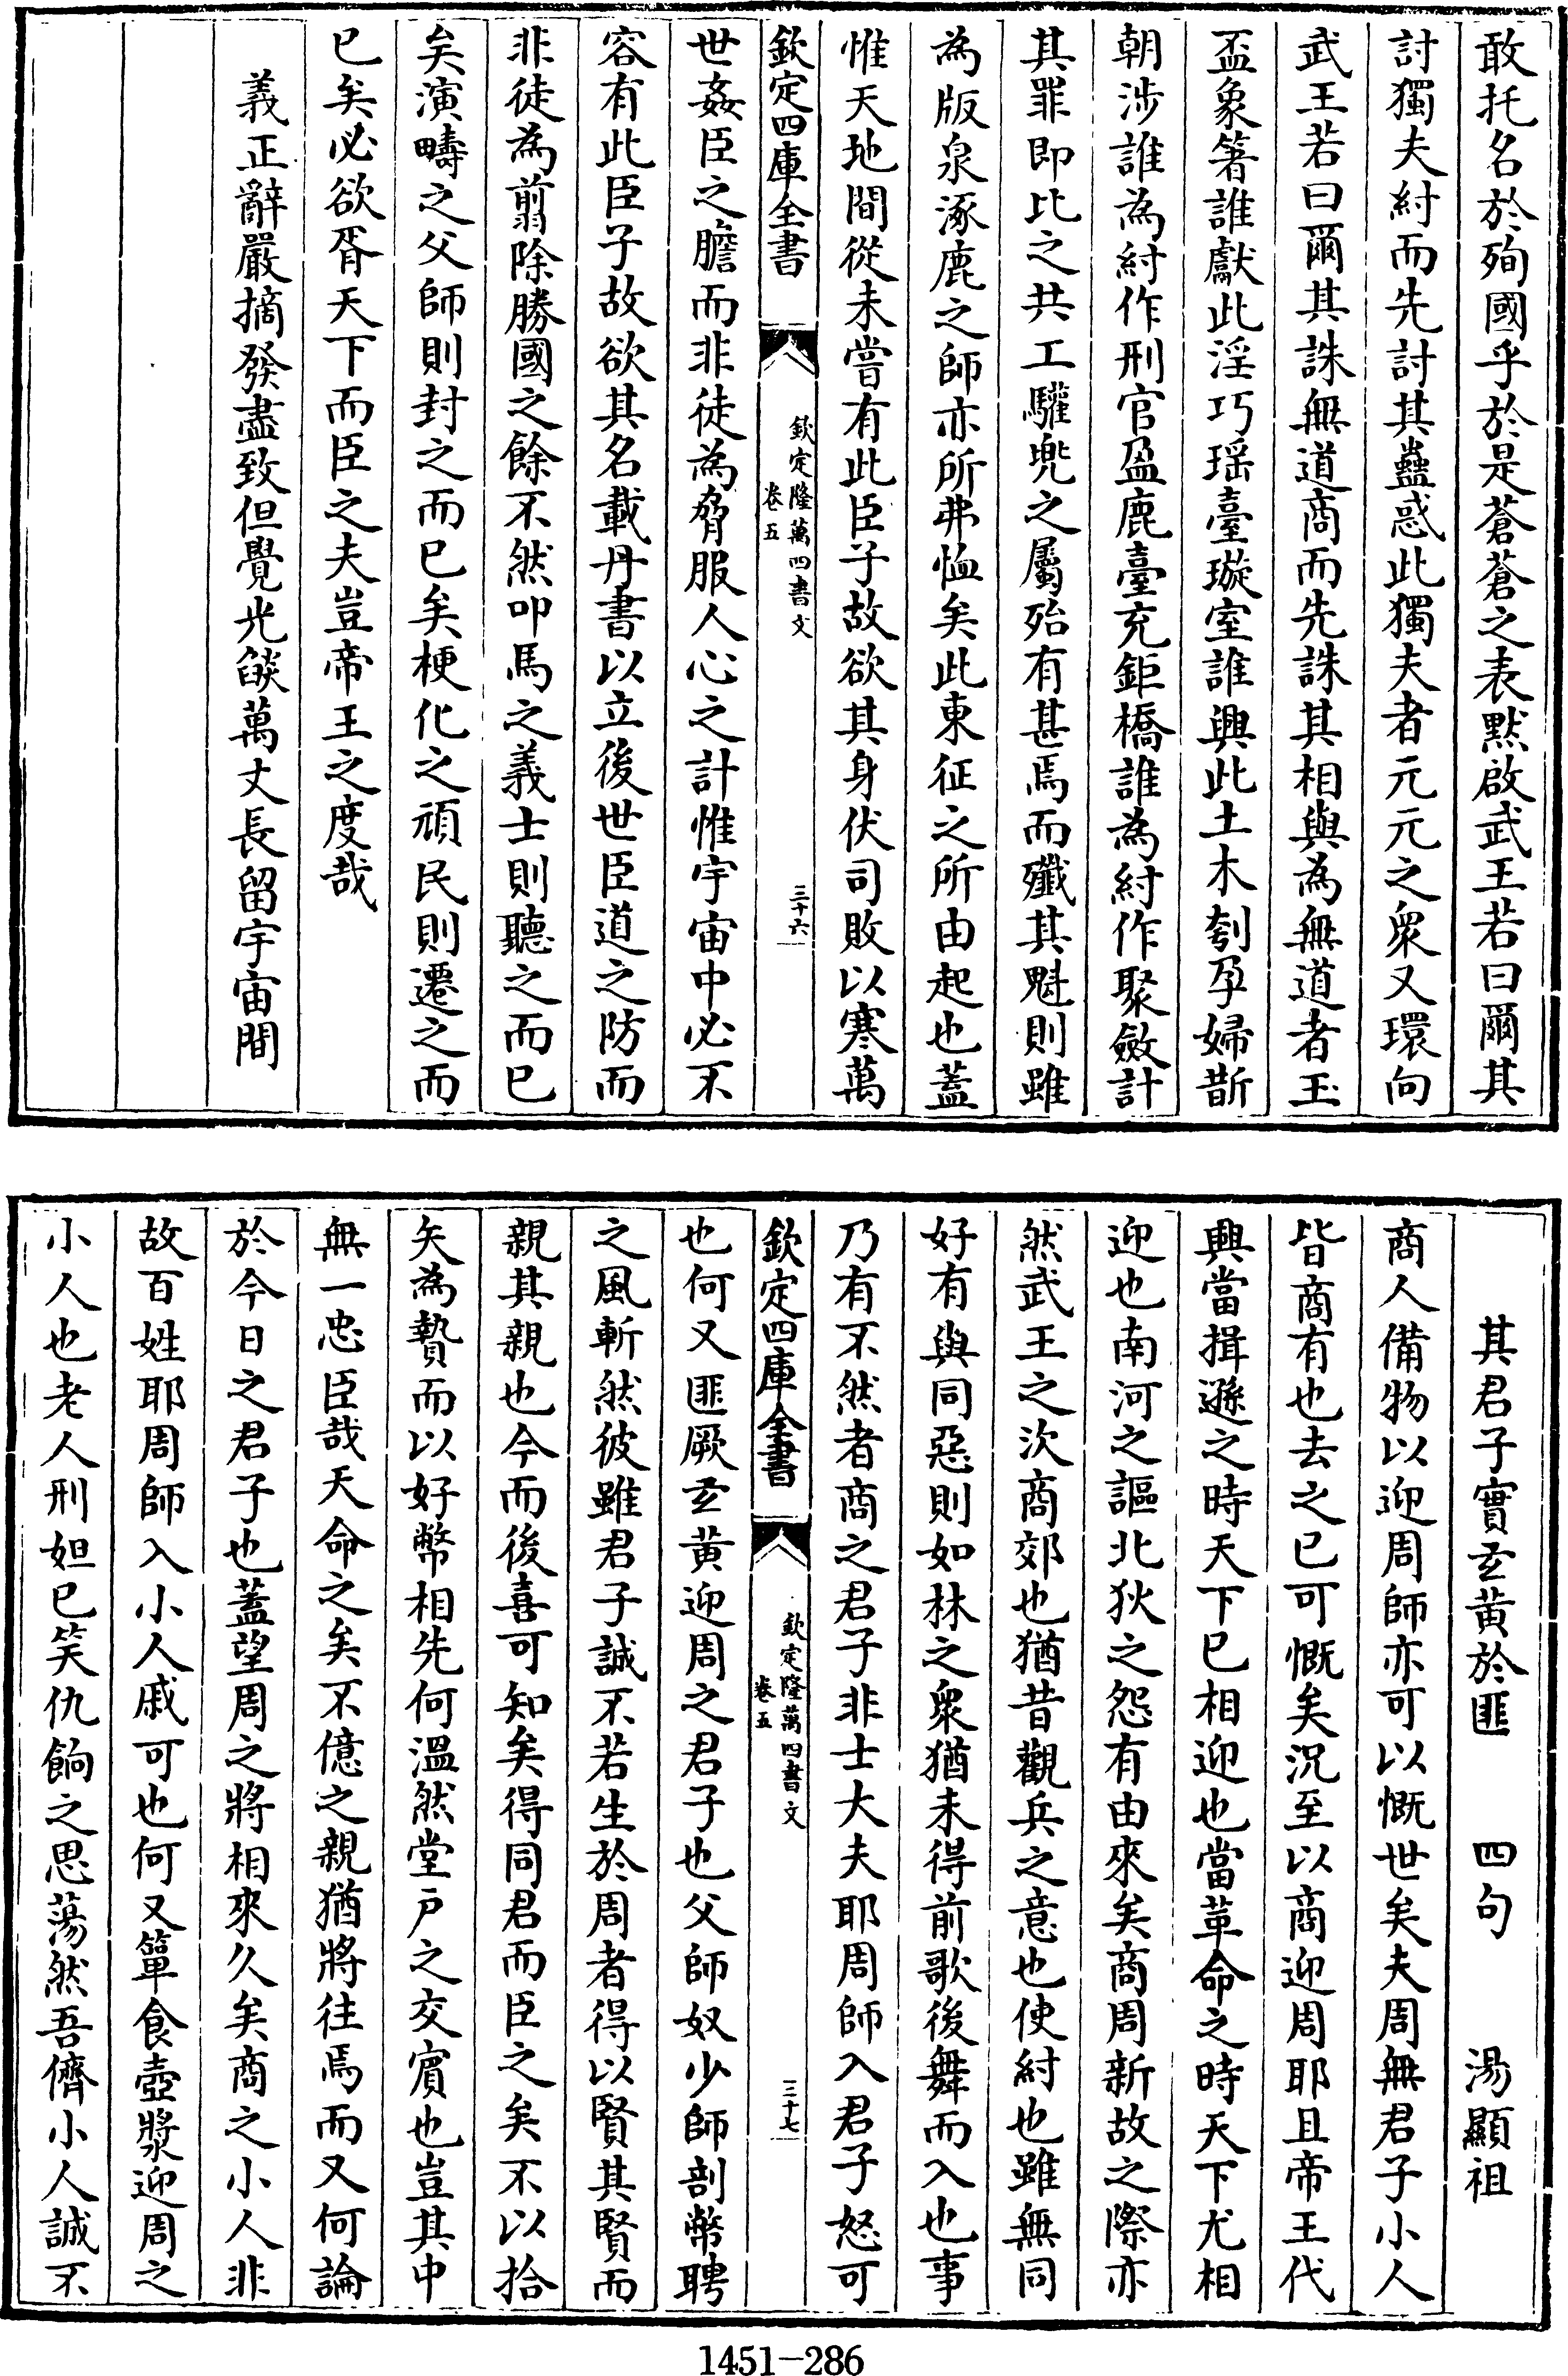 敢托名於殉國乎於是蒼蒼之表默啟武王若曰爾其
討獨夫紂而先討其蠱惑此獨夫者元元之衆又環向
武王若曰爾其誅無道商而先誅其相與為無道者玉
盃象箸誰獻此淫巧瑶臺璇室誰興此土木刳孕婦斮
朝涉誰為紂作刑官盈鹿臺充鉅橋誰為紂作聚斂計
其罪即比之共工驩兜之屬殆有甚焉而殲其魁則雖
為版泉涿鹿之師亦所弗恤矣此東征之所由起也蓋
惟天地間從未嘗有此臣子故欲其身伏司敗以寒萬
欽定四庫全書
欽定隆萬四書文
卷五
三十六
世姦臣之膽而非徒為脅服人心之計惟宇宙中必不
容有此臣子故欲其名載丹書以立後世臣道之防而
非徒為翦除勝國之餘不然叩馬之義士則聽之而已
矣演疇之父師則封之而已矣梗化之頑民則遷之而
已矣必欲胥天下而臣之夫豈帝王之度哉
義正辭嚴摘發盡致但覺光燄萬丈長留宇宙間
其君子實玄黃於匪 四句 湯顯祖
商人備物以迎周師亦可以慨世矣夫周無君子小人
皆商有也去之已可慨矣況至以商迎周耶且帝王代
興當揖遜之時天下已相迎也當革命之時天下尤相
迎也南河之謳北狄之怨有由來矣商周新故之際亦
然武王之次商郊也猶昔觀兵之意也使紂也雖無同
好有與同惡則如林之衆猶未得前歌後舞而入也事
乃有不然者商之君子非士大夫耶周師入君子怒可
欽定四庫全書
欽定隆萬四書文
卷五
三十七
也何又匪厥玄黃迎周之君子也父師奴少師剖幣聘
之風斬然彼雖君子誠不若生於周者得以賢其賢而
親其親也今而後喜可知矣得同君而臣之矣不以拾
矢為贄而以好幣相先何溫然堂戶之交賓也豈其中
無一忠臣哉天命之矣不億之親猶將往焉而又何論
於今日之君子也蓋望周之將相來久矣商之小人非
故百姓耶周師入小人戚可也何又簞食壺漿迎周之
小人也老人刑妲已笑仇餉之思蕩然吾儕小人誠不
1451-286